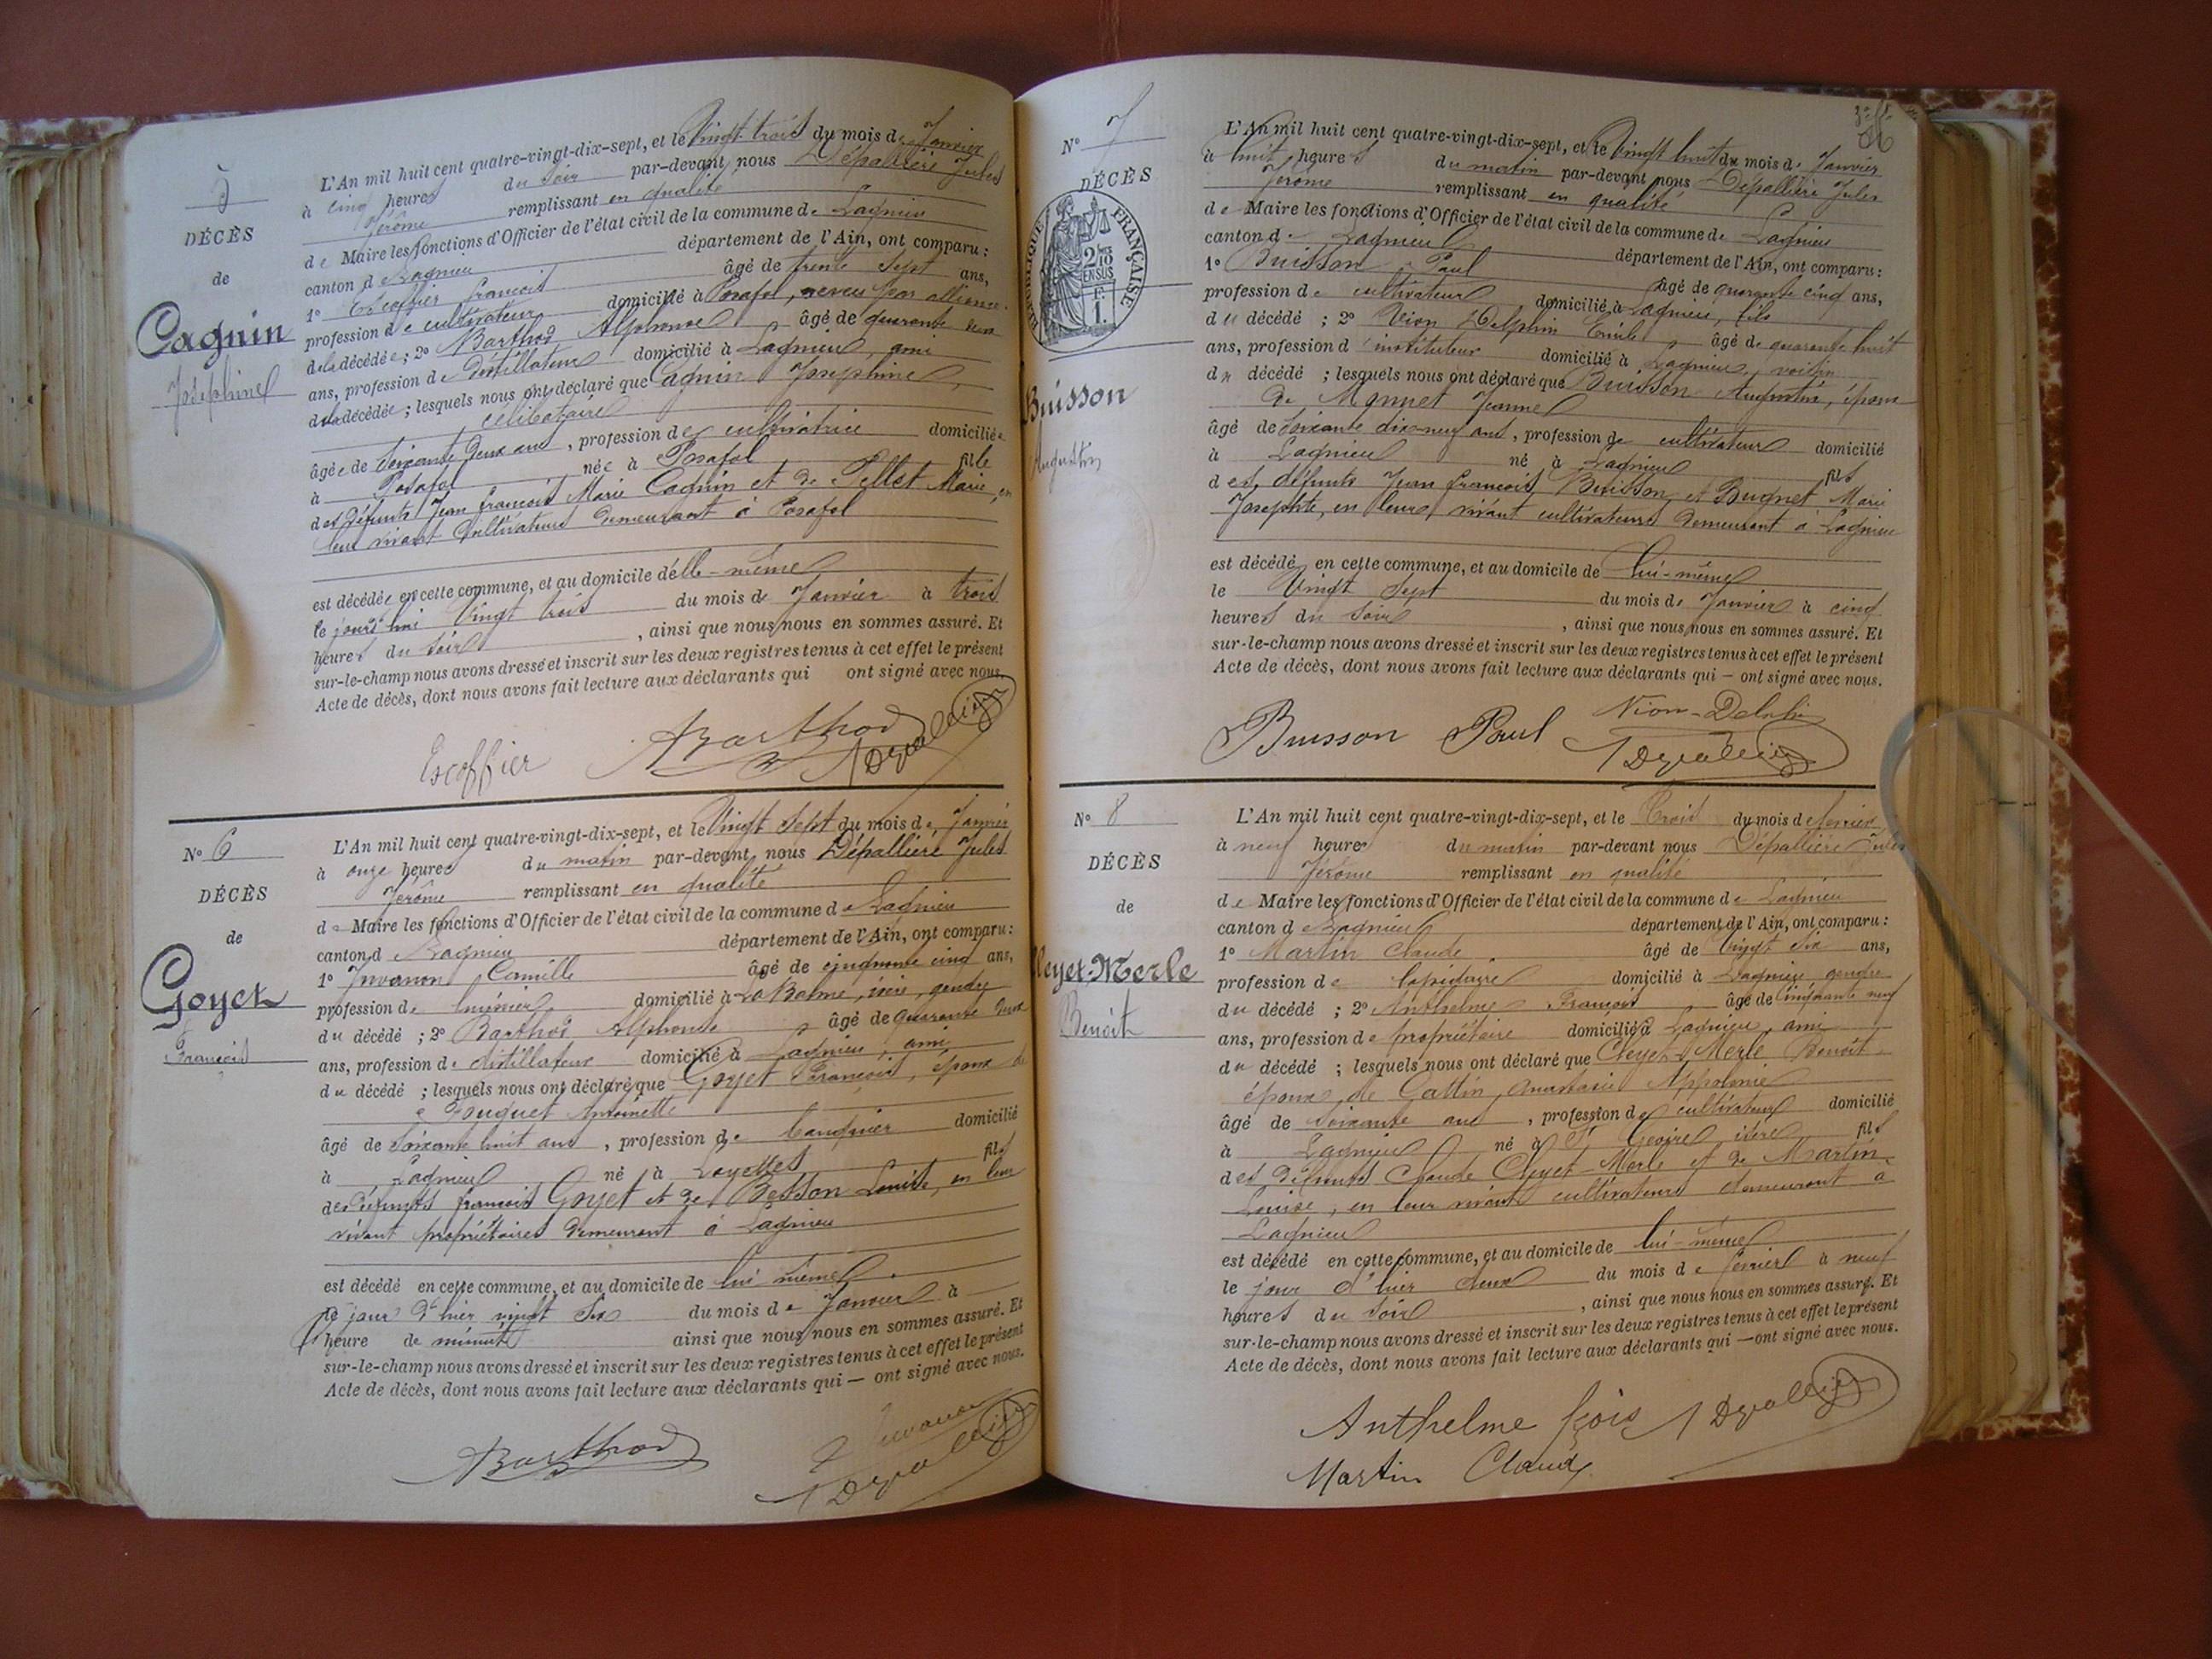 5
DÉCÈS
de
Cagnin
Joséphine
L'An mil huit cent quatre-vingt-dix-sept, et le Vingt trois du mois de Janvier
à cinq heures du soir par-devant nous Dépallière Jules
Jérôme remplissant en qualité
de Maire les fonctions d'Officier de l'état civil de la commune de Lagnieu
canton de Lagnieu département de l'Ain, ont comparu :
1° Escoffier françois âgé de trente sept ans,
profession de cultivateur domicilié à Posafol, neveu par alliance
de la décédée ; 2° Barthod Alphonse âgé de quarante deux
ans, profession de distillateur domicilié à Lagnieu, ami
de la décédée ; lesquels nous ont déclaré que Cagnin Joséphine,
célibataire
âgée de soixante deux ans, profession de cultivatrice domiciliée
à Posafol née à Posafol fille
des défunts Jean françois Marie Cagnin et de Pellet Marie, en
leur vivant cultivateurs demeurant à Posafol
est décédée en cette commune, et au domicile d'elle-même
le jourd'hui Vingt trois du mois de Janvier à trois
heures du soir, ainsi que nous nous en sommes assuré. Et
sur-le-champ nous avons dressé et inscrit sur les deux registres tenus à cet effet le présent
Acte de décès, dont nous avons fait lecture aux déclarants qui ont signé avec nous.
Escoffier ABarthod
N° 6
DÉCÈS
de
Goyet
François
L'An mil huit cent quatre-vingt-dix-sept, et le Vingt sept du mois de Janvier
à onze heures du matin par-devant nous Dépallière Jules
Jérôme remplissant en qualité
de Maire les fonctions d'Officier de l'état civil de la commune de Lagnieu
canton d Lagnieu département de l'Ain, ont comparu :
1° Juvanon Camille âgé de cinquante cinq ans,
profession de domicilié à La Balme, isère, gendre
du décédé ; 2° Barthod Alphonse âgé de quarante deux
ans, profession de distillateur domicilié à Lagnieu, ami
du décédé ; lesquels nous ont déclaré que Goyet François, époux de
Antoinette
âgé de soixante huit ans, profession de domicilié
à Lagnieu né à Loyettes fils
des défunts françois Goyet et de Besson Louise, en leur
vivant propriétaires demeurant à Lagnieu
est décédé en cette commune, et au domicile de lui même
le jour d'hier vingt six du mois de Janvier à
heure de minuit ainsi que nous nous en sommes assuré. Et
sur-le-champ nous avons dressé et inscrit sur les deux registres tenus à cet effet le présent
Acte de décès, dont nous avons fait lecture aux déclarants qui — ont signé avec nous.
ABarthod Juvanon
N° 7
DÉCÈS
RÉPUBLIQUE FRANÇAISE
2/10 EN SUS
F.
1.
Buisson
Augustin
L'An mil huit cent quatre-vingt-dix-sept, et le Vingt huit du mois de Janvier
à huit heures du matin par-devant nous Dépallière Jules
Jérôme remplissant en qualité
de Maire les fonctions d'Officier de l'état civil de la commune de Lagnieu
canton de Lagnieu département de l'Ain, ont comparu :
1° Buisson Paul âgé de quarante cinq ans,
profession de cultivateur, domicilié à Lagnieu, fils
du décédé ; 2° Vion Delphin Emile âgé de quarante huit
ans, profession d instituteur domicilié à Lagnieu, voisin
du décédé ; lesquels nous ont déclaré que Buisson Augustin, époux
de Monnet Jeanne
âgé de soixante dix-neuf ans, profession de cultivateur domicilié
à Lagnieu né à Lagnieu fils
des défunts Jean françois Buisson et Bugnet Marie
Josephte, en leurs vivant cultivateurs demeurant à Lagnieu
est décédé en cette commune, et au domicile de lui-même
le Vingt sept du mois de Janvier à cinq
heures du soir, ainsi que nous nous en sommes assuré. Et
sur-le-champ nous avons dressé et inscrit sur les deux registres tenus à cet effet le présent
Acte de décès, dont nous avons fait lecture aux déclarants qui — ont signé avec nous.
Buisson Paul Vion-Delphin
N° 8
DÉCÈS
de
Cleyet-Merle
Benoît
L'An mil huit cent quatre-vingt-dix-sept, et le Trois du mois de février
à neuf heures du matin par-devant nous Dépallière Jules
Jérôme remplissant en qualité
de Maire les fonctions d'Officier de l'état civil de la commune de Lagnieu
canton d Lagnieu département de l'Ain, ont comparu :
1° Martin Claude âgé de Vingt six ans,
profession de lapidaire domicilié à Lagnieu, gendre
du décédé ; 2° Anthelme François âgé de cinquante neuf
ans, profession de propriétaire domicilié à Lagnieu, ami
du décédé ; lesquels nous ont déclaré que Cleyet-Merle Benoît
époux de Gattin Anastasie Appolonie
âgé de soixante ans, profession de cultivateur domicilié
à Lagnieu né à St Geoire, isère fils
des défunts Claude Cleyet-Merle et de Martin
Louise, en leur vivant cultivateurs demeurant à
Lagnieu
est décédé en cette commune, et au domicile de lui-même
le jour d'hier deux du mois de février à neuf
heures du soir, ainsi que nous nous en sommes assuré. Et
sur-le-champ nous avons dressé et inscrit sur les deux registres tenus à cet effet le présent
Acte de décès, dont nous avons fait lecture aux déclarants qui — ont signé avec nous.
Anthelme fçois
Martin Claude